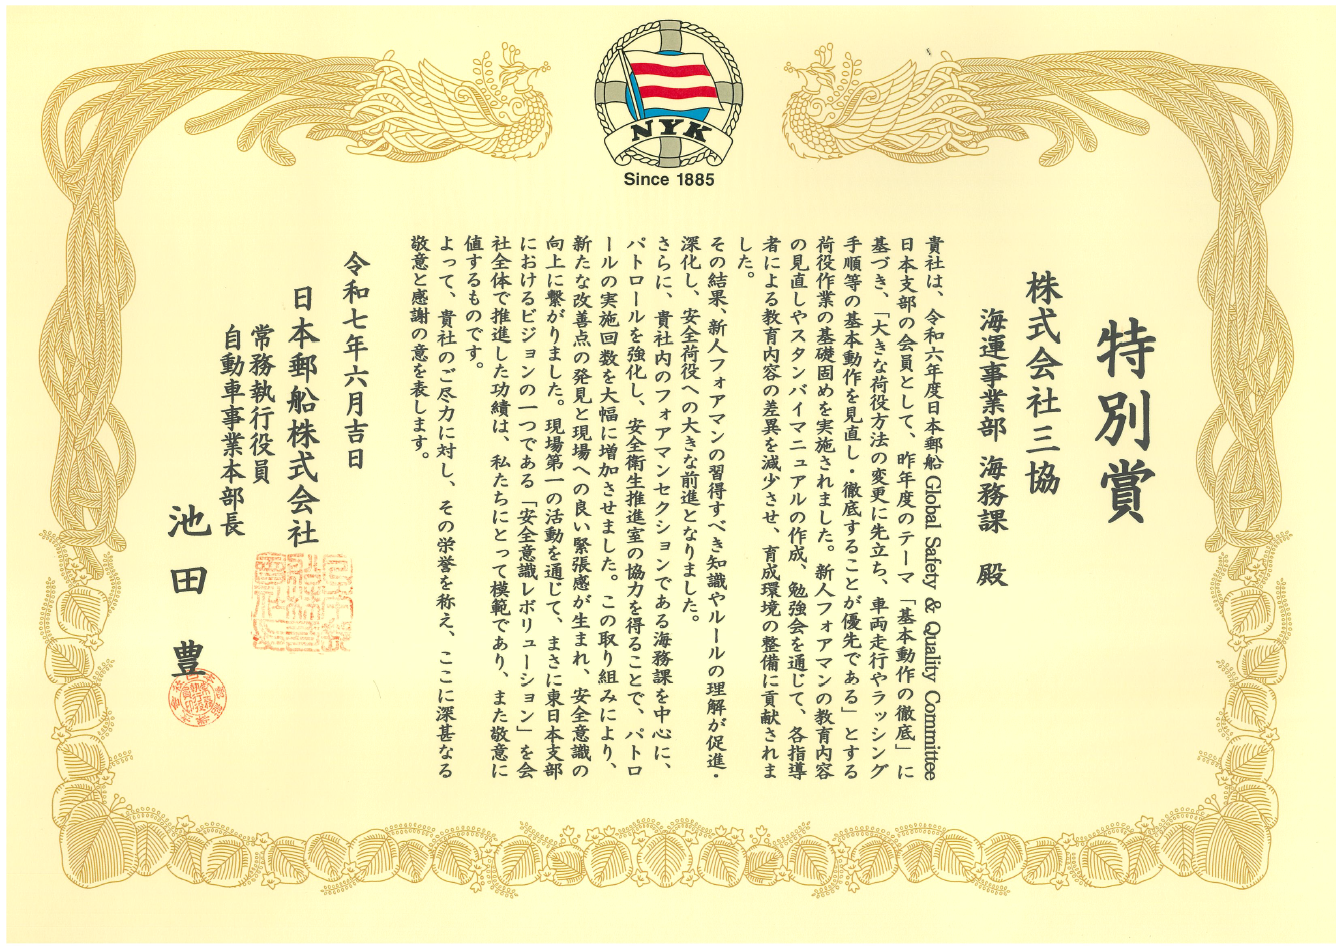 NYK
Since 1885
特別賞
株式会社三協
海運事業部 海務課 殿
貴社は、令和六年度日本郵船 Global Safety & Quality Committee
日本支部の会員として、昨年度のテーマ「基本動作の徹底」に
基づき、「大きな荷役方法の変更に先立ち、車両走行やラッシング
手順等の基本動作を見直し・徹底することが優先である」とする
荷役作業の基礎固めを実施されました。新人フォアマンの教育内容
の見直しやスタンバイマニュアルの作成、勉強会を通じて、各指導
者による教育内容の差異を減少させ、育成環境の整備に貢献されま
した。
その結果、新人フォアマンの習得すべき知識やルールの理解が促進・
深化し、安全荷役への大きな前進となりました。
さらに、貴社内のフォアマンセクションである海務課を中心に、
パトロールを強化し、安全衛生推進室の協力を得ることで、パトロ
ールの実施回数を大幅に増加させました。この取り組みにより、
新たな改善点の発見と現場への良い緊張感が生まれ、安全意識の
向上に繋がりました。現場第一の活動を通じて、まさに東日本支部
におけるビジョンの一つである「安全意識レボリューション」を会
社全体で推進した功績は、私たちにとって模範であり、また敬意に
値するものです。
よって、貴社のご尽力に対し、その栄誉を称え、ここに深甚なる
敬意と感謝の意を表します。
令和七年六月吉日
日本郵船株式会社
常務執行役員
自動車事業本部長
池田 豊